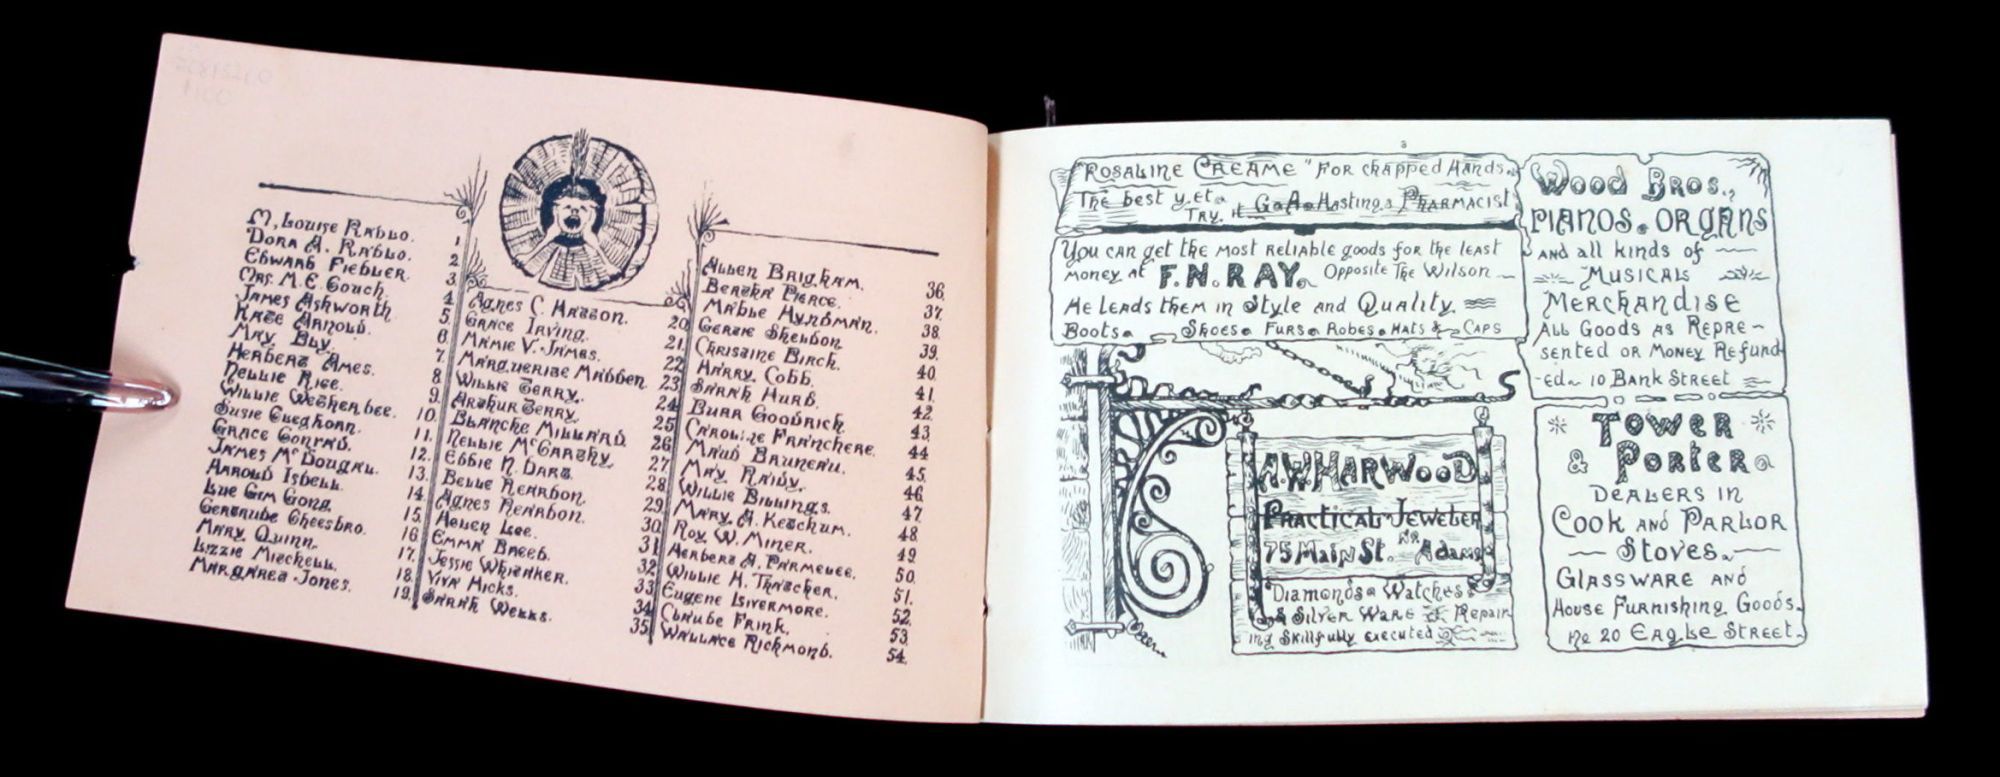 M, Louise Rablo. 1
Dora A. Rablo. 2
Edward Fiebler. 3
Mrs. M. E. Couch. 4
James Ashworth 5
Kate Arnold. 6
May Bly. 7
Herbert Ames. 8
Nellie Rice. 9
Willie Wetherbee. 10
Susie Cleghorn. 11
Grace Conrad. 12
James McDougall 13
Arnold Isbell 14
Lue Gim Gong. 15
Gertrude Cheesbro. 16
Mary Quinn. 17
Lizzie Mitchell. 18
Margaret Jones. 19
Agnes C. Hatson. 20
Grace Irving. 21
Mamie V. James. 22
Marguerise Madden 23
Willie Terry. 24
Arthur Terry 25
Blanche Millard 26
Nellie McCarthy. 27
Eddie N. Dart. 28
Belle Reardon. 29
Agnes Reardon. 30
Helen Lee. 31
Emma Breed. 32
Jessie Whitaker. 33
Viva Hicks. 34
Sarah Wells. 35
Allen Brigham. 36
Bertha Pierce. 37
Mable Hyndman. 38
Gertie Sheldon 39
Christine Birch. 40
Harry Cobb. 41
Sarah Hurd. 42
Burr Goodrich. 43
Caroline Franchere. 44
Maud Bruneau. 45
May Raidy. 46
Willie Billings. 47
Mary A. Ketchum. 48
Roy W. Miner. 49
Herbert A. Parmelee. 50
Willie H. Thatcher. 51
Eugene Livermore. 52
Claude Frink. 53
Wallace Richmond. 54
3
"Rosaline Creame" For chapped Hands.
The best yet.
Try it G.A. Hastings Pharmacist
You can get the most reliable goods for the least
money at F.N. RAY. Opposite The Wilson
He Leads them in Style and Quality.
Boots. Shoes. Furs. Robes. Hats & Caps
Wood Bros.,
Pianos. Organs
and all kinds of
Musical
Merchandise
All Goods as Repre-
sented or Money Refund
ed. 10 Bank Street
A.W. Harwood
Practical Jeweler
75 Main St. No Adams
Diamonds Watches
& Silver Ware Repair
ing Skillfully executed
Tower
& Porter
Dealers in
Cook and Parlor
Stoves.
Glassware and
House Furnishing Goods.
No 20 Eagle Street.